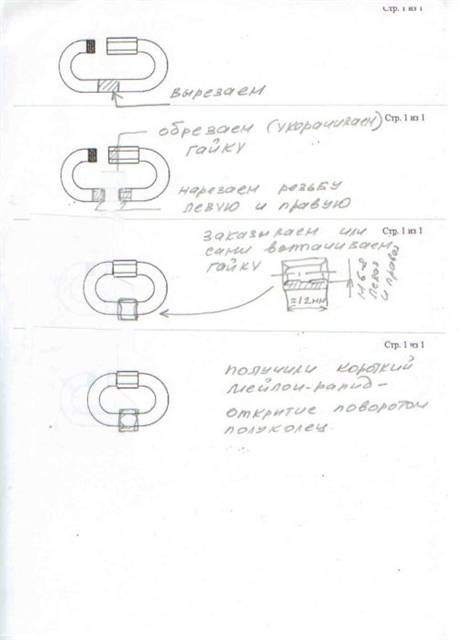 Стр. 1 из 1
вырезаем
Стр. 1 из 1
обрезаем (укорачиваем)
гайку
нарезаем резьбу
левую и правую
Стр. 1 из 1
заказываем или
сами вытачиваем
гайку
≈12мм
М6-8
левая
и правая
Стр. 1 из 1
получили короткий
мейлон-рапид-
открытие поворотом
полуколец